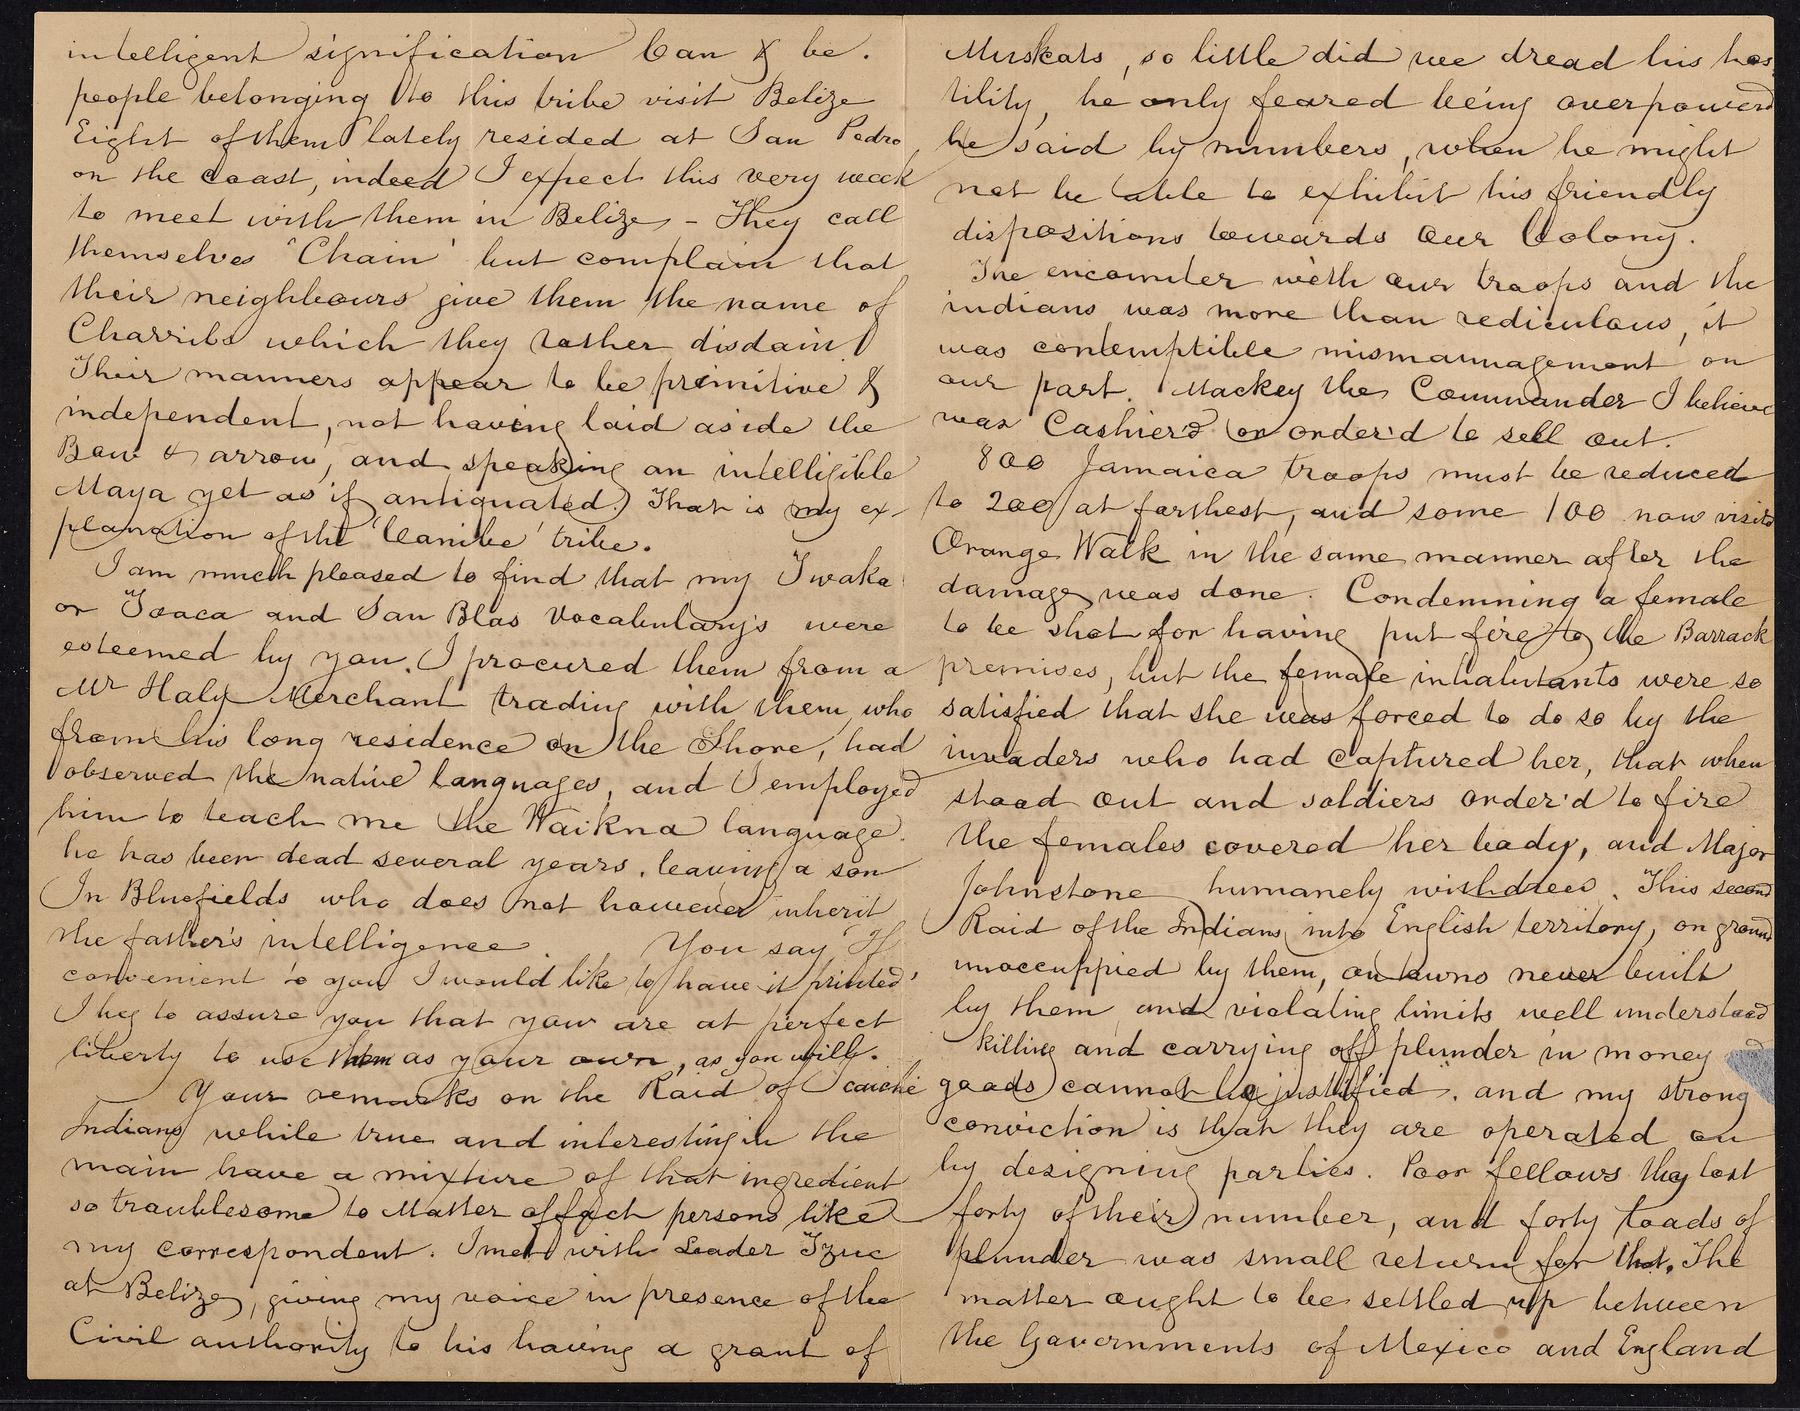 intelligent signification Can & be.
people belonging to this tribe visit Belize
Eight of them lately resided at San Pedro
on the Coast, indeed I expect this very week
to meet with them in Belize - They call
themselves 'Chain' but complain that
their neighbours give them the name of
Charribs which they rather disdain!
Their manners appear to be primitive &
independent, not having laid aside the
Bow & arrow, and speaking an intelligible
Maya yet as if antiquated. That is my ex-
planation of the 'Canibe' tribe.
I am much pleased to find that my Twaka
or Toaca and San Blas Vocabulary's were
esteemed by you. I procured them from a
Mr Haly Merchant trading with them, who
from his long residence on the Shore, had
observed the native languages, and I employed
him to teach me the Waikna language.
he has been dead several years, leaving a son
In Bluefields who does not however inherit
the father's intelligence. You say 'If
convenient to you I would like to have it printed'
I beg to assure you that your are at perfect
liberty to use them as your own, as you will.
Your remarks on the Raid of Icaiche
Indians while true and interesting in the
main have a mixture of that ingredient
so troublesome to Matter of fact persons like
my correspondent. I met with Leader Tzuc
at Belize, giving my voice in presence of the
Civil authority to his having a grant of
Muskats, so little did we dread his hos
tility, he only feared being overpowerd
he said by numbers, when he might
not be able to exhibit his friendly
dispositions towards Our Colony.
The encounter with our troops and the
indians was more than rediculous, it
was contemptible mismannagement on
our part. Mackey the Commander I believe
was Cashier'd or order'd to sell out.
800 Jamaica troops must be reduced
to 200 at farthest, and some 100 now visits
Orange Walk in the same manner after the
damage was done. Condemning a female
to be shot for having put fire to the Barrack
premises, but the female inhabutants were so
satisfied that she was forced to do so by the
invaders who had captured her, that when
stood out and soldiers order'd to fire
the females covered her body, and Major
Johnstone humanely . This second
Raid of the Indians into English territory, on ground
unoccuppied by them, on towns never built
by them and violating limits well understood
killing and carrying off plunder in money
goods cannot be justified. and my strong
conviction is that they are operated on
by designing parties. Poor fellows they lost
forty of their number, and forty loads of
plunder was small return for that. The
matter ought to be settled up between
the Governments of Mexico and England